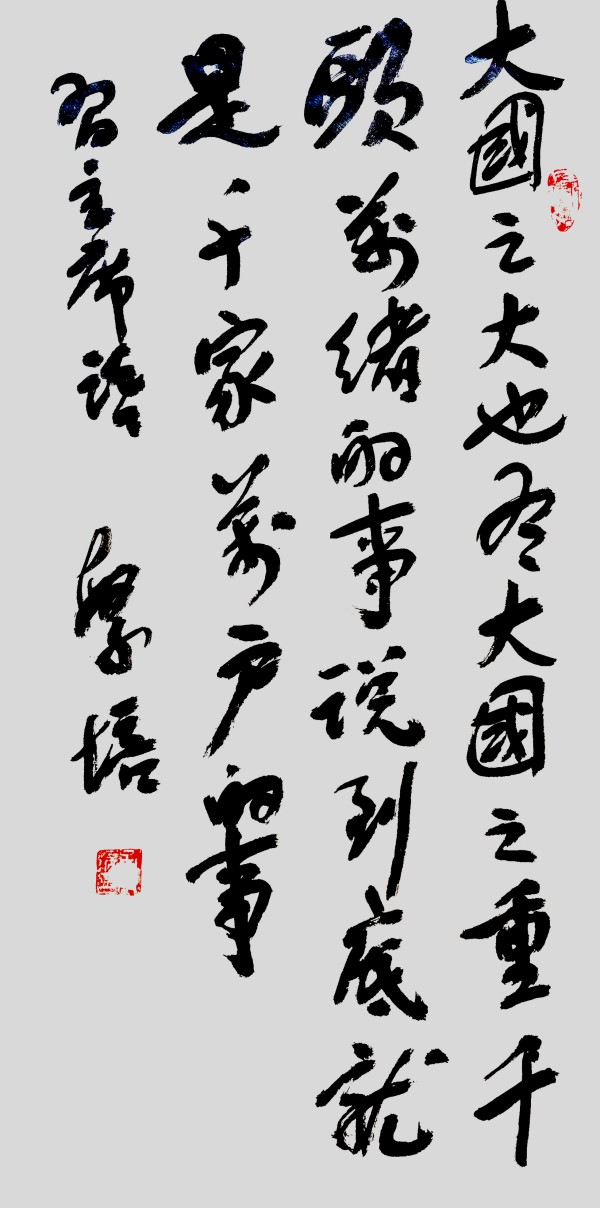 大國之大也有大國之重千
頭萬緒的事説到底就
是千家萬户的事
習主席語 培